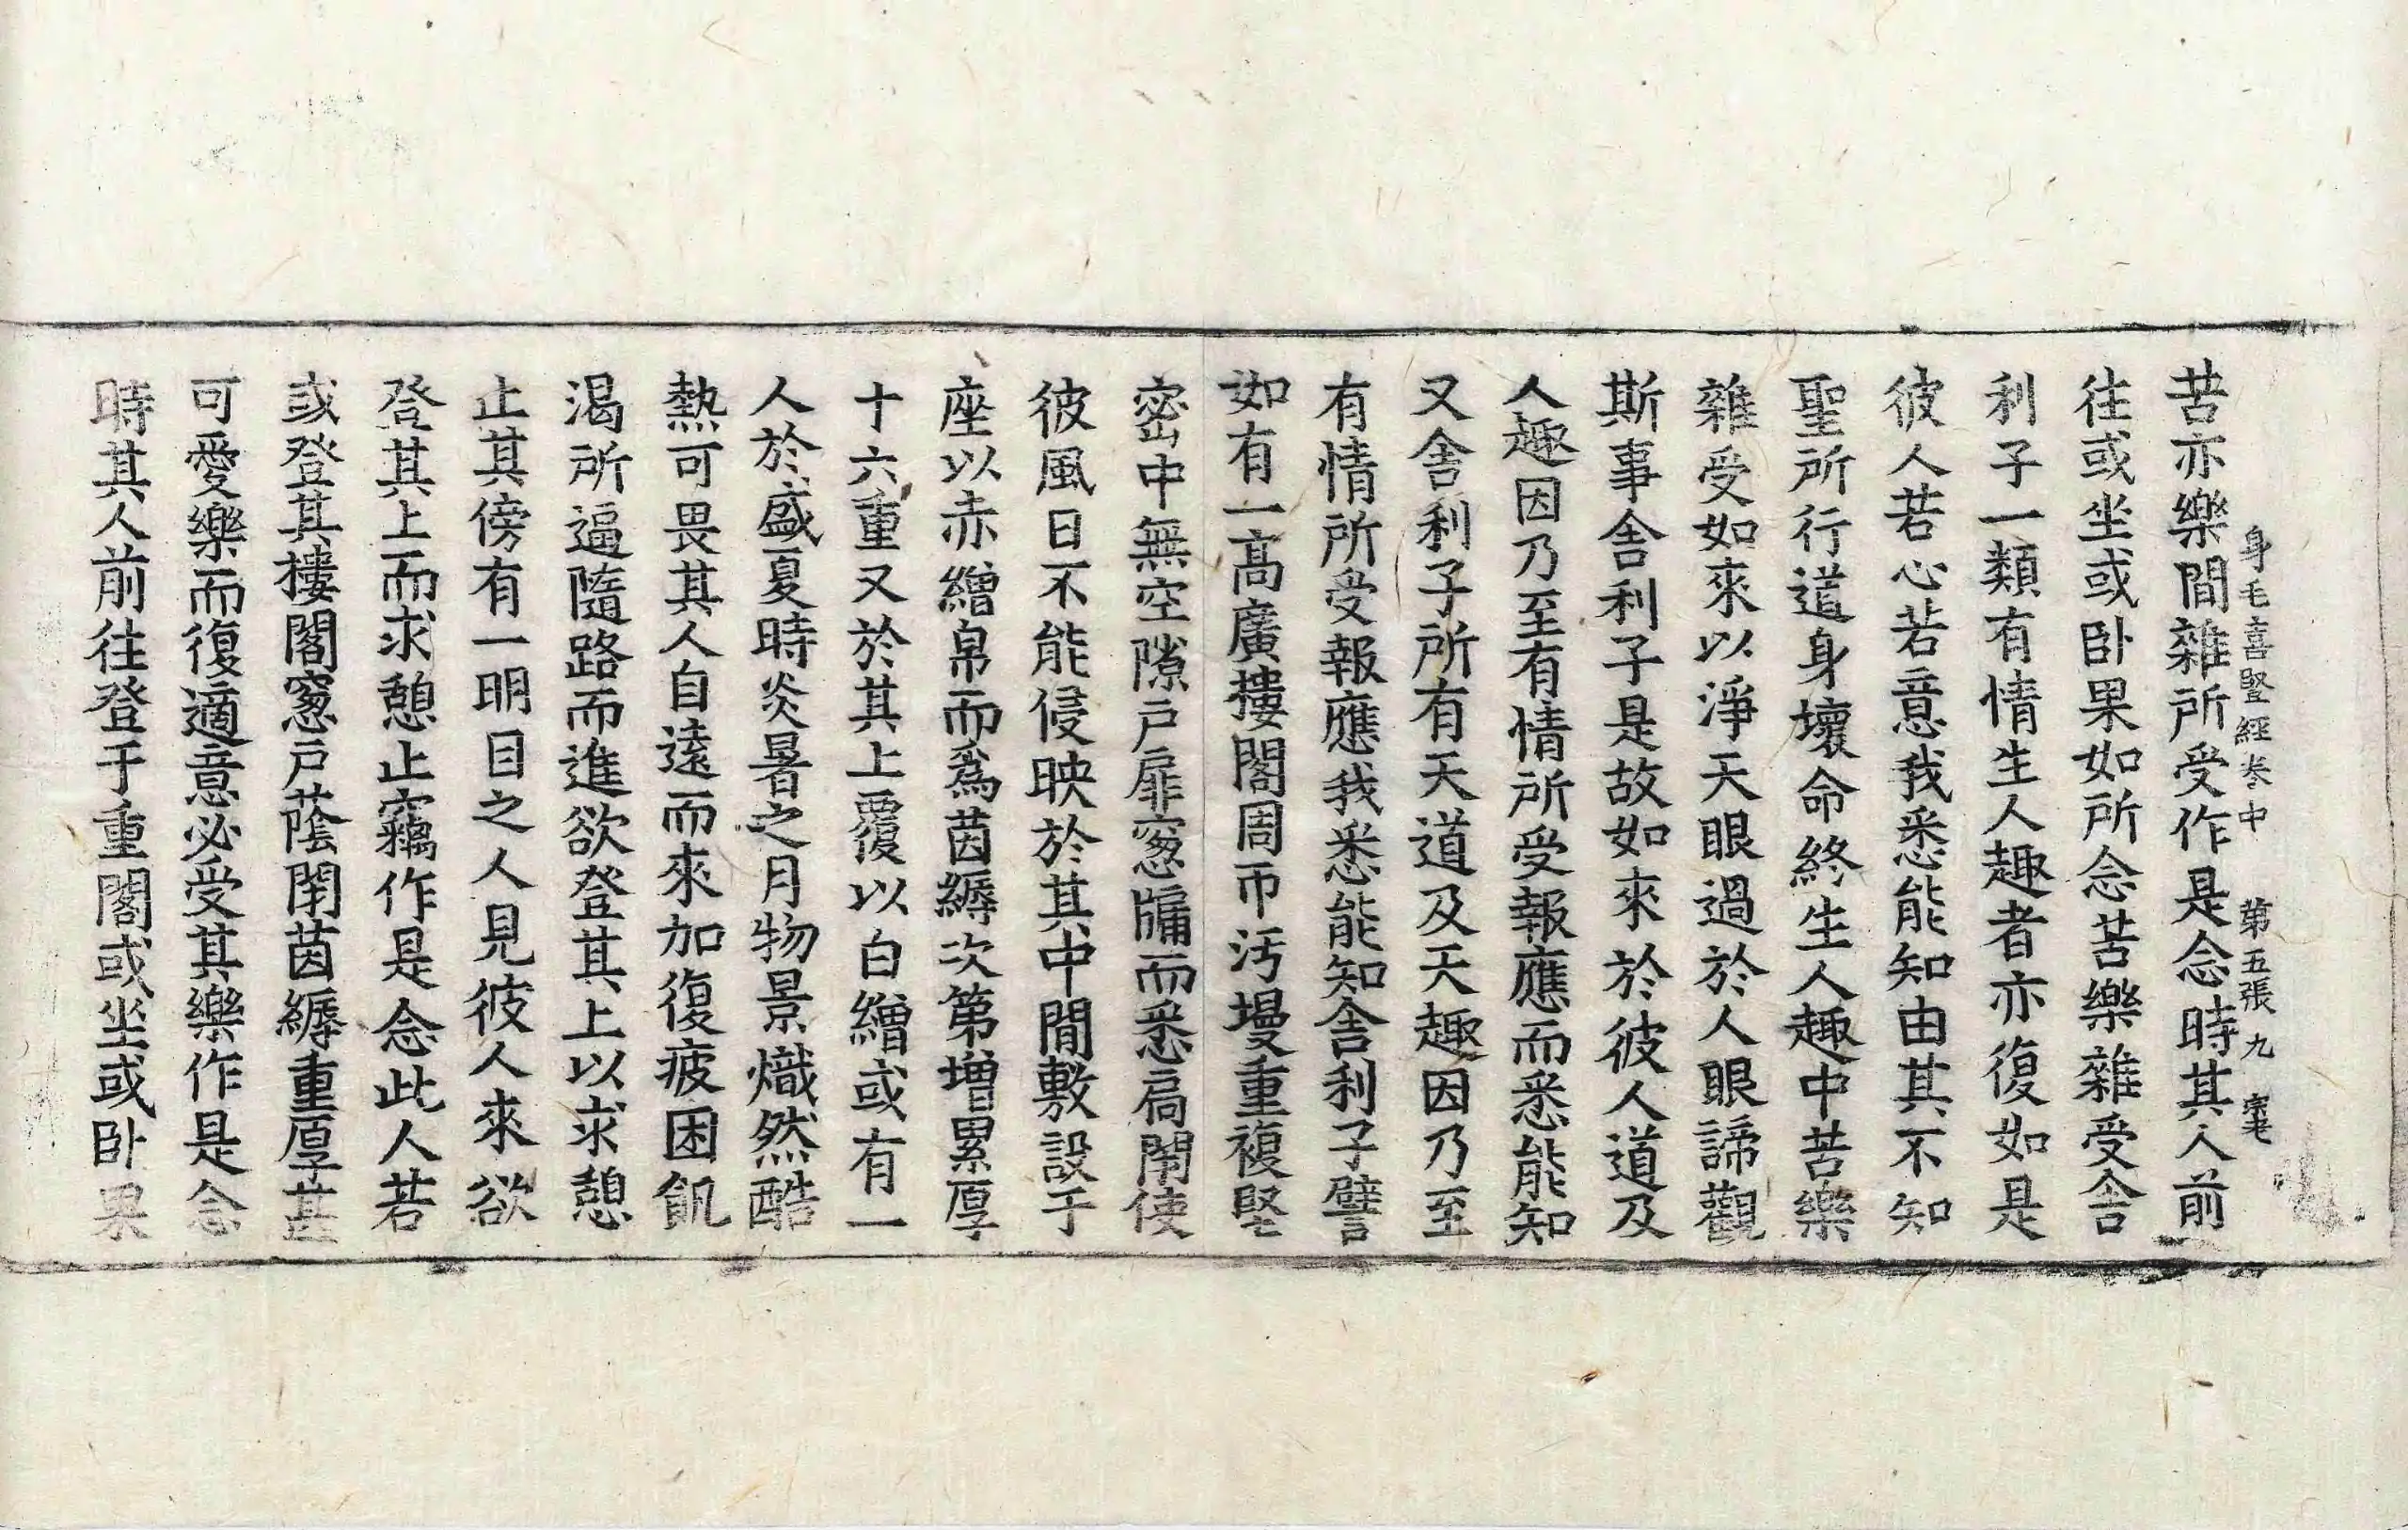 身毛喜竪經卷中 第五張 九
苦亦樂間雜所受作是念時其人前
往或坐或卧果如所念苦樂雜受舍
利子一類有情生人趣者亦復如是
彼人若心若意我悉能知由其不知
聖所行道身壞命終生人趣中苦樂
雜受如來以淨天眼過於人眼諦觀
斯事舍利子是故如來於彼人道及
人趣因乃至有情所受報應而悉能知
又舍利子所有天道及天趣因乃至
有情所受報應我悉能知舍利子譬
如有一高廣摟閣周帀汚墁重複堅
密中無空隙户扉窓牖而悉扃閇使
彼風日不能侵映於其中間敷設于
座以赤繒帛而爲茵縟次第增累厚
十六重又於其上覆以白繒或有一
人於盛夏時炎暑之月物景熾然酷
熱可畏其人自遠而來加復疲困飢
渴所逼隨路而進欲登其上以求憩
止其傍有一明目之人見彼人來欲
登其上而求憩止竊作是念此人若
或登其摟閣窓户蔭閇茵縟重厚甚
可愛樂而復適意必受其樂作是念
時其人前往登于重閣或坐或卧果